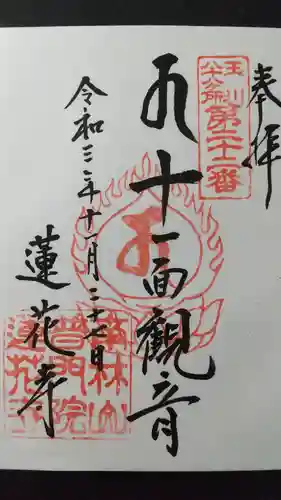 奉拝
玉川
八十八ヶ所
第二十二番
十一面観音
令和三年十一月二十七日
蓮花寺
南林山
普門院
蓮花寺